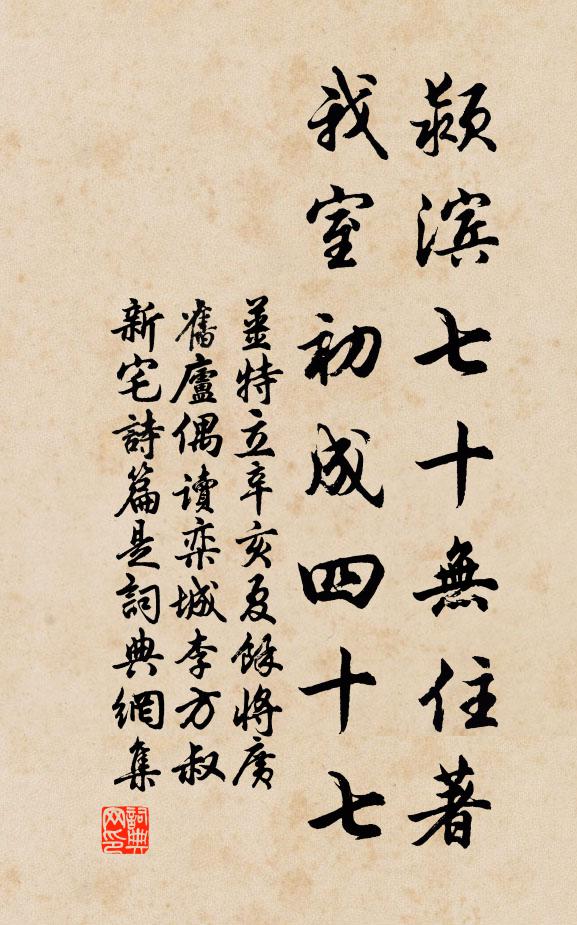 颍滨七十無住著
我室初成四十七
姜特立辛亥夏餘將廣
舊廬偶讀栾城李方叔
新宅詩篇是詞典網集
詞典网印